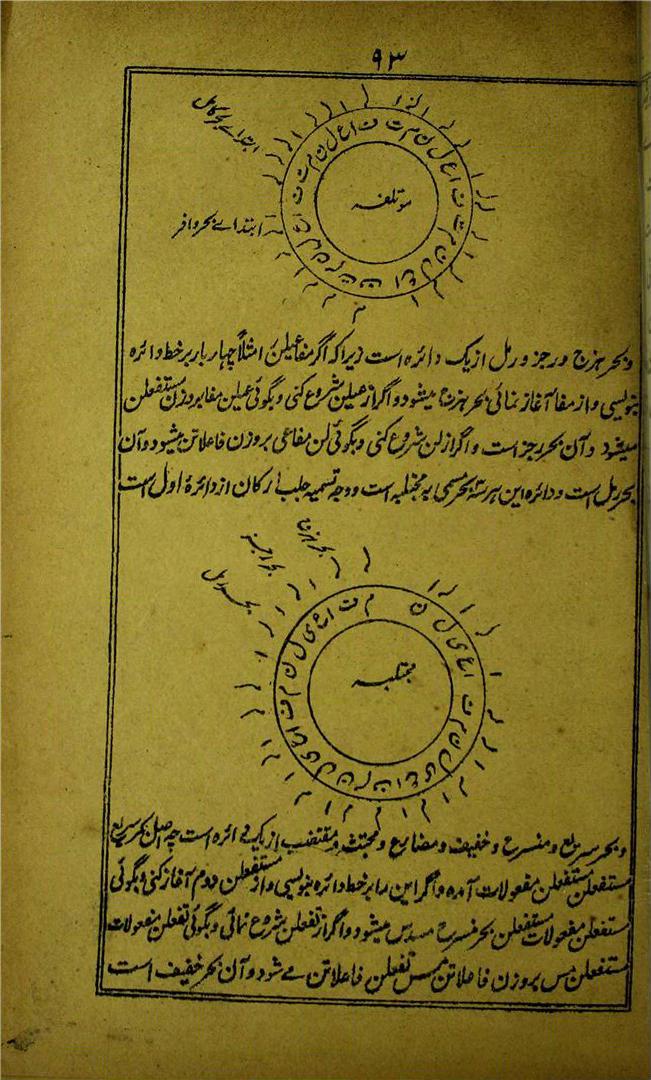 ۹۳
ابتداے بحر کامل
ابتداے بحر وافر
موتلفہ
و بحر ہزج و رجز و رمل از یک دائرہ است زیرا کہ اگر مفاعیلن امثلاً چہار بار بر خط دائرہ
بنویسی و از مفا آغاز نمائی بحر ہزج میشود و اگر از عیلن شروع کنی و بگوئی عیلن مفا بر وزن مستفعلن
میشود و آن بحر رجز است و اگر از لن شروع کنی و بگوئی لن مفاعی بروزن فاعلاتن میشود و آن
بحر رمل است و دائرہ این ہر سہ بحر مسمی بہ مجتلبہ است و وجہ تسمیہ جلب ارکان از دائرۂ اول است
بحر ہزج
بحر رجز
بحر رمل
مجتلبہ
و بحر سریع و منسرح و خفیف و مضارع و مجتث و مقتضب از یک دائرہ است چہ اصل بحر سریع
مستفعلن مستفعلن مفعولات آمدہ و اگر این را بر خط دائرہ بنویسی و از مستفعلن دوم آغاز کنی و بگوئی
مستفعلن مفعولات مستفعلن بحر منسرح مسدس میشود و اگر از تفعلن شروع نمائی و بگوئی تفعلن مفعولات
مستفعلن مس بروزن فاعلاتن مس تفعلن فاعلاتن مے شود و آن بحر خفیف است